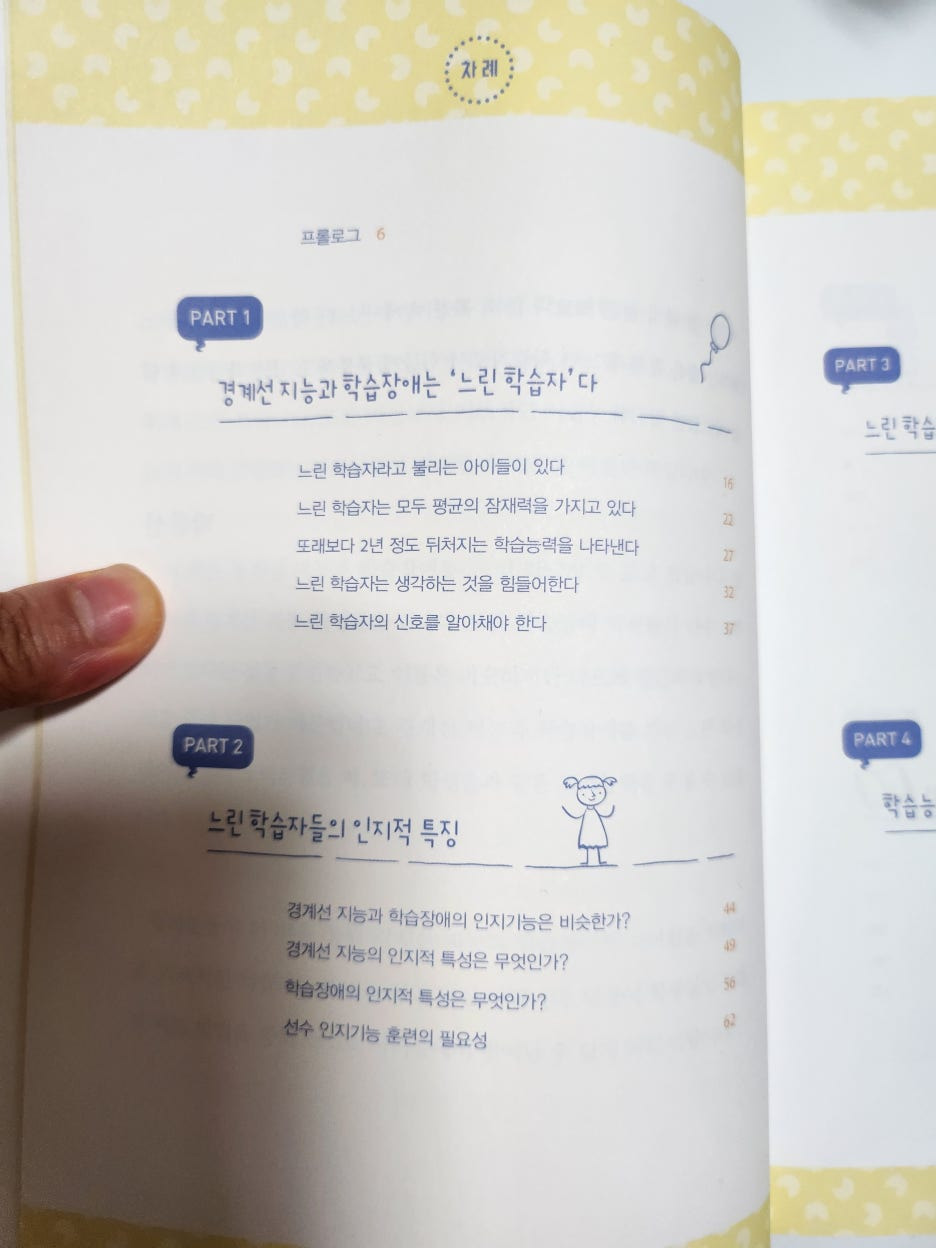 차례
프롤로그 6
PART 1
경계선 지능과 학습장애는 ‘느린 학습자’다
느린 학습자라고 불리는 아이들이 있다 16
느린 학습자는 모두 평균의 잠재력을 가지고 있다 22
또래보다 2년 정도 뒤처지는 학습능력을 나타낸다 27
느린 학습자는 생각하는 것을 힘들어한다 32
느린 학습자의 신호를 알아채야 한다 37
PART 2
느린 학습자들의 인지적 특징
경계선 지능과 학습장애의 인지기능은 비슷한가? 44
경계선 지능의 인지적 특성은 무엇인가? 49
학습장애의 인지적 특성은 무엇인가? 56
선수 인지기능 훈련의 필요성 62
PART 3
느린 학습
PART 4
학습능